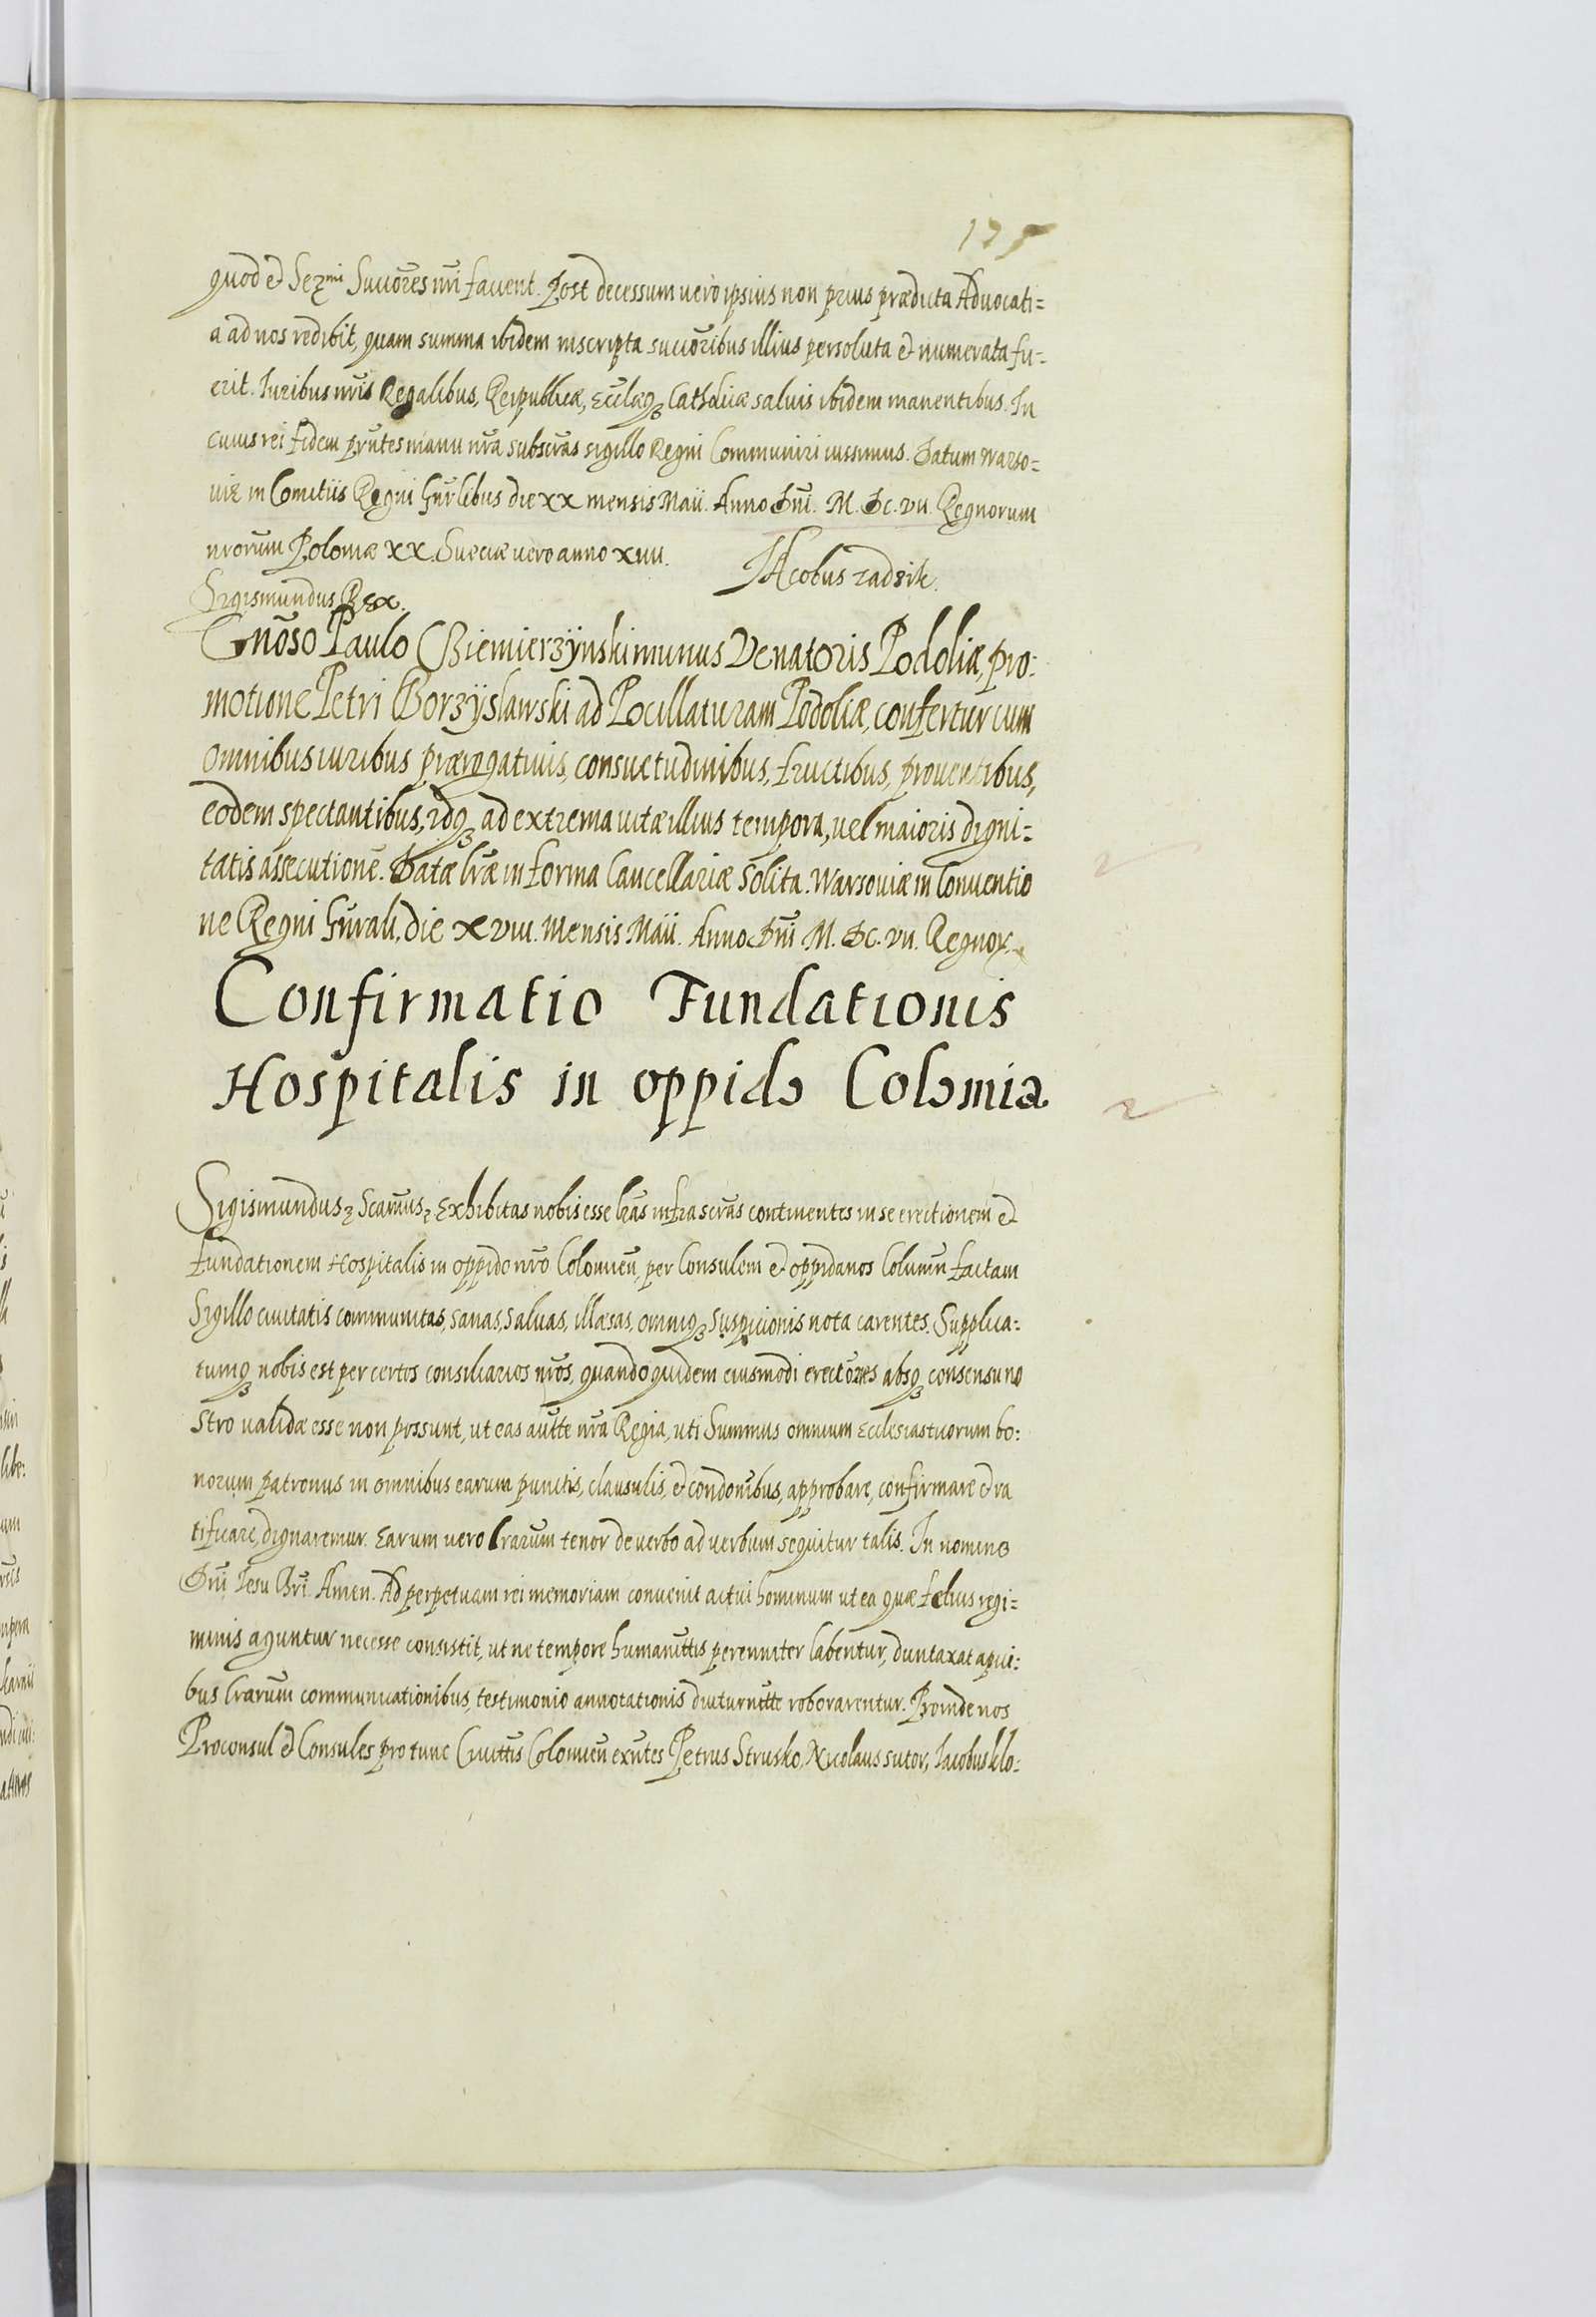 quod et Sermi Succōres nr̄i facient. Post decessum vero ipsius non prius prædicta Advocati=
a ad nos redibit, quam summa ibidem inscripta succōribus illius persoluta et numerata fu=
erit. Iuribus nr̄is Regalibus, Reipublicæ, Eccl̄æq3 Catholicæ salvis ibidem manentibus. In
cuius rei fidem pn̄tes manu nr̄a subscr̄as sigillo Regni Communiri iussimus. Datum Warso=
viæ in Comitiis Regni Gn̄rlibus die XX mensis Maii. Anno Dn̄i. M. DC. VII. Regnorum
nrorūm Poloniæ XX. Sueciæ vero anno XIIII.
Sigismundus Rex. Jacobus Zadzik.
Gnōso Paulo Biemierzÿnski munus Venatoris Podoliæ, pro:
motione Petri Borzÿslawski ad Pocillaturam Podoliæ, confertur cum
omnibus iuribus prærogativis, consuetudinibus, fructibus, proventibus,
eodem spectantibus, idq3 ad extrema vitæ illius tempora, vel maioris digni=
tatis assecutionē. Datæ lr̄æ in forma Cancellariæ solita. Warsoviæ in Conventio
ne Regni Gn̄rali, die XVIII. Mensis Maii. Anno Dn̄i M. DC. VII. Regnoꝝ
Confirmatio Fundationis
Hospitalis in oppido Colomia
Sigismundus Scām̄us Exhibitas nobis esse lr̄as infrascr̄as continentes in se erectionem et
fundationem Hospitalis in oppido nr̄o Colomień, per Consulem et oppidanos Colum̄n factam
Sigillo civitatis communitas, sanas, salvas, illæsas, omniq3 suspicionis nota carentes. Supplica=
tumq3 nobis est per certos consiliarios nr̄os, quandoquidem eiusmodi erectōnes absq3 consensu no
stro validæ esse non possunt, ut eas autt̄e nr̄a Regia, uti Summus omnium Ecclesiasticorum bo:
norum patronus in omnibus earum punctis, clausulis, et condōnibus, approbare, confirmare et ra
tificare, dignaremur. Earum vero lrarūm tenor de verbo ad verbum sequitur talis. In nomine
Dn̄i Iesu Chr̄i. Amen. Ad perpetuam rei memoriam convenit actui hominum ut ea quæ felicis regi=
minis aguntur necesse consistit, ut ne tempore humanitt̄is perenniter labentur, duntaxat apici=
bus lrarūm communicationibus, testimonio annotationis diuturnitt̄e roborarentur. Proinde nos
Proconsul et Consules pro tunc Civitt̄is Colomień exn̄tes Petrus Strusko, Nicolaus sutor, Iacobus klo=